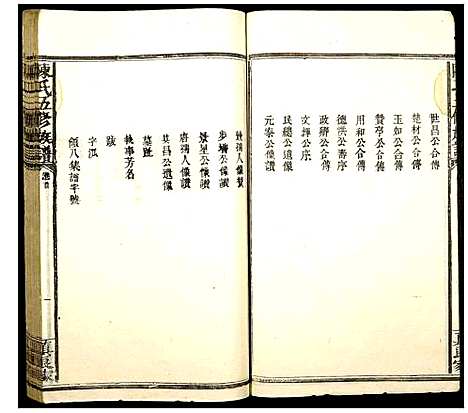 世昌公合傳
楚材公合傳
玉如公合傳
贊亭公合傳
用和公合傳
政齋公合傳
德洪公壽序
文拜公序
民總公遺像
元泰公像讚
孺人像讚
步墀公像讚
景星公像讚
唐孺人像讚
其昌公遺像
墓誌
執事芳名
跋
字派
領八集譜字號
陳氏五修族譜
卷首
一